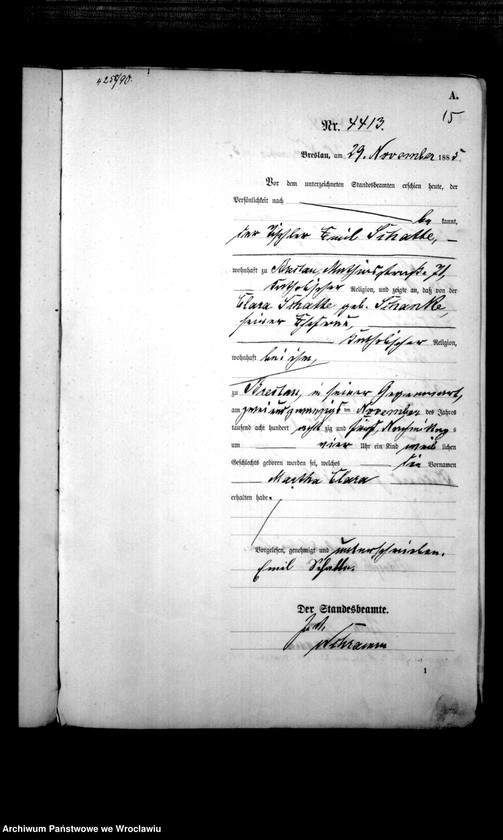 4259/90.
A.
15
Nr. 4413.
Breslau, am 29. November 1885
Vor dem unterzeichneten Standesbeamten erschien heute, der
Persönlichkeit nach
be kannt,
der Tischler Emil Schatte,
wohnhaft zu Breslau, Mathiasstraße 71,
katholischer Religion, und zeigte an, daß von der
Clara Schatte geb. Schanke,
seiner Ehefrau,
katholischer Religion,
wohnhaft bei ihm,
zu Breslau, in seiner Gegenwart,
am zwei und zwanzigs ten November des Jahres
tausend acht hundert acht zig und fünf, Nachmittags
um vier Uhr ein Kind weib lichen
Geschlechts geboren worden sei, welches die Vornamen
Martha Clara
erhalten habe.
Vorgelesen, genehmigt und unterschrieben.
Emil Schatte.
Der Standesbeamte.
J. V.
1
Archiwum Państwowe we Wrocławiu